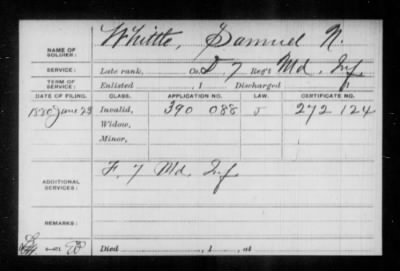 Whittle, Samuel N.
NAME OF SOLDIER:
SERVICE: Late rank, Co. D 7 Reg't Md. Inf.
TERM OF SERVICE: Enlisted , 1 Discharged , 1
DATE OF FILING. CLASS. APPLICATION NO. LAW. CERTIFICATE NO.
1880 June 23 Invalid, 390 088 272 124
Widow,
Minor,
ADDITIONAL SERVICES: F. 7 Md. Inf
REMARKS:
Died , 1 , at